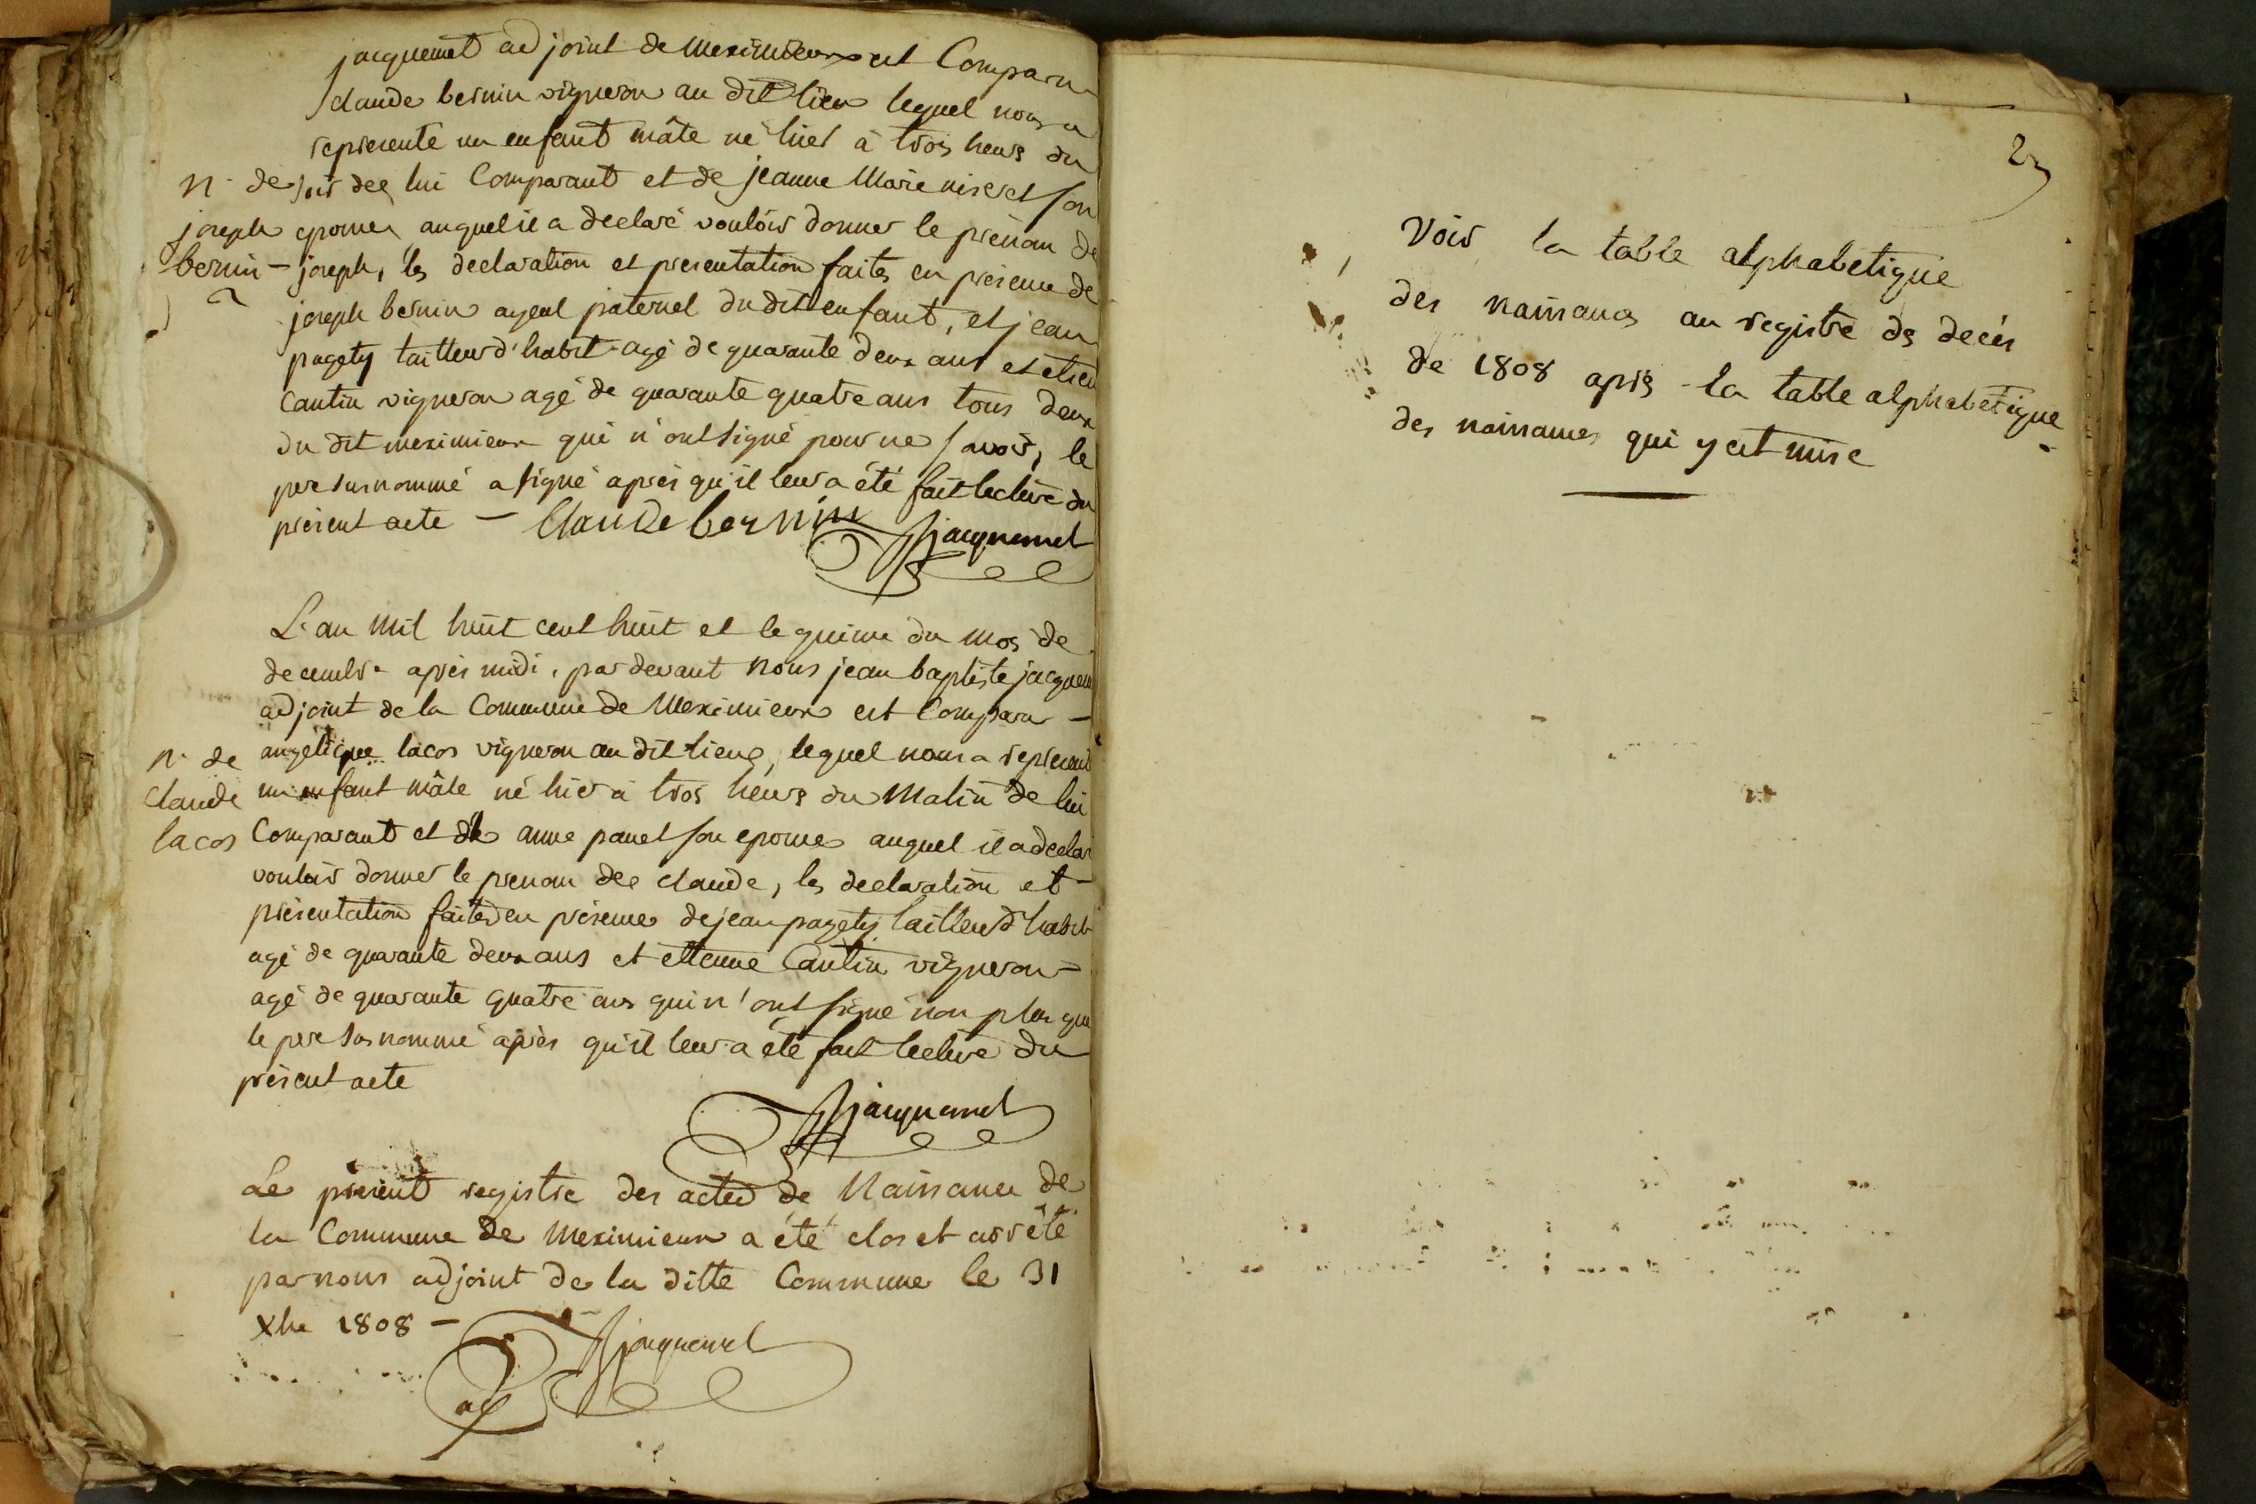 jacquemet adjoint de meximieux est Comparu
claude bernin vigneron au dit lieu lequel nous a
representé un enfant mâle né hier à trois heurs du
soir de lui Comparant et de jeanne Marie niseret son
epouse auquel il a declaré vouloir donner le prénom de
joseph, les declaration et presentation faites en présence de
joseph bernin ayeul paternel du dit enfant, et jean
pagety tailleur d'habit agé de quarante deux ans et etien
Cantin vigneron agé de quarante quatre ans tous deux
du dit meximieux qui n'ont signé pour ne savoir, le
pere susnommé a signé après qu'il leur a été fait lecture du
présent acte — Claude bernin
jacquemet
n. de
joseph
bernin
L'an mil huit cent huit et le quinze du mois de
decembre après midi, par devant nous jean baptiste jacquem
adjoint de la Commune de Meximieux est Comparu —
angelique lacos vigneron au dit lieu, lequel nous a represent
un enfant mâle né hier à trois heurs du Matin de lui
Comparant et de anne panet son epouse auquel il a declar
vouloir donner le prenom de claude, les declaration et
présentation faites en présence de jean pagety tailleur d'habit
agé de quarante deux ans et ettienne Cantin vigneron —
agé de quarante quatre ans qui n'ont signé non plus que
le pere susnommé après qu'il leur a été fait lecture du
présent acte
n. de
claude
lacos
jacquemet
Le présent registre des actes de Naissance de
la Commune de Meximieux a été clos et arrêté
par nous adjoint de la ditte Commune le 31
Xbre 1808 —
jacquemet
adj
23
Voir la table alphabetique
des naissances au registre des décès
de 1808 après la table alphabetique
des naissances qui y est mise